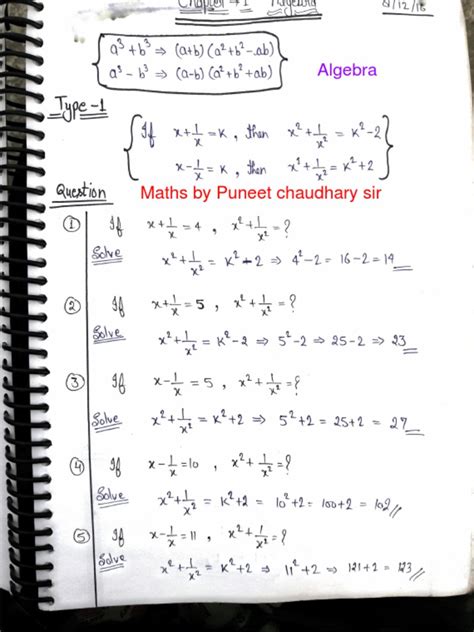 Chapter → 1 Algebra
a³ + b³ ⇒ (a+b) (a²+b²-ab)
a³ - b³ ⇒ (a-b) (a²+b²+ab)
Algebra
Type-1
If x+1/x=K, then x²+1/x² = K²-2
x-1/x=K, then x²+1/x² = K²+2
Question
Maths by Puneet chaudhary sir
① If x+1/x=4, x²+1/x²=?
Solve
x²+1/x² = K²-2 ⇒ 4²-2 = 16-2 = 14
② If x+1/x=5, x²+1/x²=?
Solve
x²+1/x² = K²-2 ⇒ 5²-2 ⇒ 25-2 ⇒ 23
③ If x-1/x=5, x²+1/x²=?
Solve
x²+1/x² = K²+2 ⇒ 5²+2 = 25+2 = 27
④ If x-1/x=10, x²+1/x²=?
Solve
x²+1/x² = K²+2 = 10²+2 = 100+2 = 102
⑤ If x-1/x=11, x²+1/x²=?
Solve
x²+1/x² = K²+2 ⇒ 11²+2 ⇒ 121+2 = 123